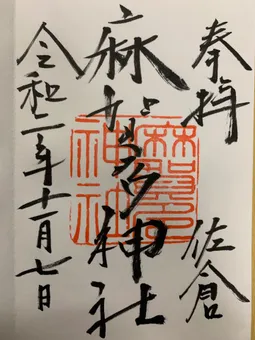 奉拝 佐倉
麻加多神社
令和二年十一月七日
麻賀多神社